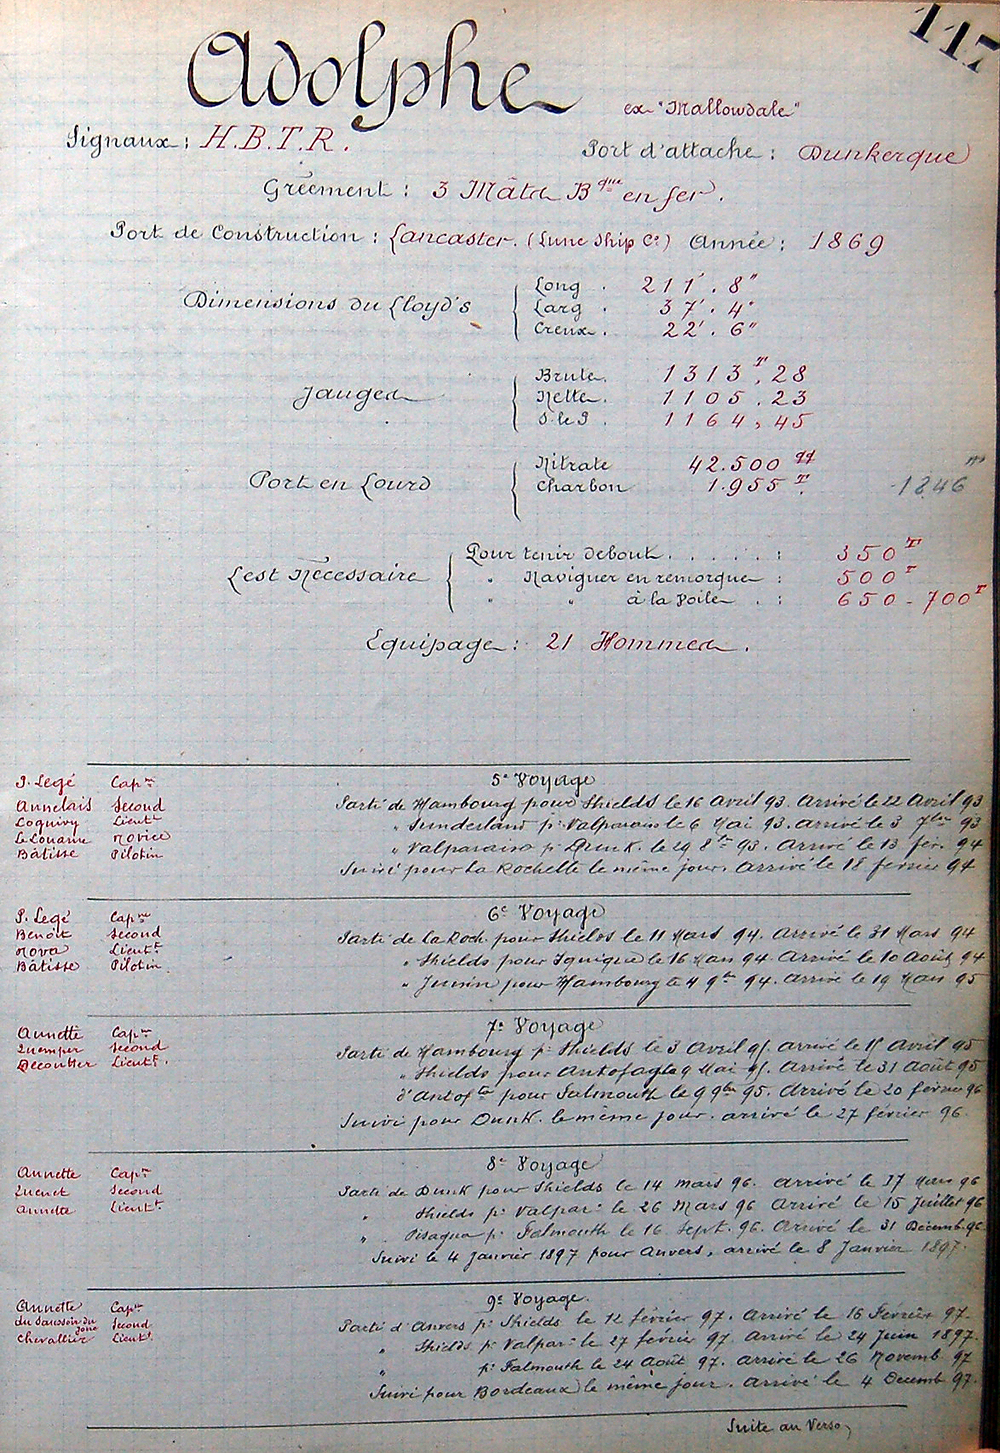 117
Adolphe
ex "Mallowdale"
Signaux : H.B.T.R.
Port d'attache : Dunkerque
Gréement : 3 Mâts Bque en fer.
Port de Construction : Lancaster. (Lune Ship Co) Année : 1869
Dimensions du Lloyd's
Long . 211' . 8"
Larg . 37' . 4"
Creux . 22' . 6"
Jauges
Brute. 1313T.28
Nette. 1105.23
S le P . 1164,45
Port en Lourd
Nitrate 42.500 qq
Charbon 1.955 T.
1846 m
Lest Nécessaire
Pour tenir debout . . . . . : 350T
" Naviguer en remorque : 500T
" " à la Voile . : 650 - 700T
Equipage : 21 Hommes.
5e Voyage
P. Legé Capne
Annelais Second
Loquivy Lieutt
Le Louarne Novice
Bâtisse Pilotin
Parti de Hambourg pour Shields le 16 Avril 93. Arrivé le 22 Avril 93
" Sunderland pr Valparaiso le 6 Mai 93. Arrivé le 3 7bre 93
" Valparaiso pr Dunk. le 29 8bre 93. Arrivé le 13 fév. 94
Suivi pour La Rochelle le même jour. Arrivé le 18 février 94
6e Voyage
P. Legé Capne
Benoit Second
Nova Lieutt
Bâtisse Pilotin.
Parti de La Roch. pour Shields le 11 Mars 94. Arrivé le 31 Mars 94
" Shields pour Iquique le 16 94. Arrivé le 10 Août 94
" Junin pour Hambourg le 4 9bre 94. Arrivé le 19 Mars 95
7e Voyage
Annette Capne
Quemper Second
Decoutter Lieutt.
Parti de Hambourg pr Shields le 3 Avril 95. Arrivé le Avril 95
" Shields pour Antofagta le 9 Mai 95. Arrivé le 31 Août 95
d'Antofta pour Falmouth le 9 9bre 95. Arrivé le 20 février 96
Suivi pour Dunk. le même jour. arrivé le 27 février 96.
8e Voyage
Annette Capne
Quenet Second
Annette Lieutt.
Parti de Dunk pour Shields le 14 mars 96. arrivé le 17 Mars 96
" Shields pr Valpar: le 26 Mars 96 Arrivé le 15 Juillet 96
" Pisagua pr Falmouth le 16 Sept. 96. Arrivé le 31 Décemb. 96.
Suivi le 4 Janvier 1897 pour Anvers, arrivé le 8 Janvier 1897.
9e Voyage.
Annette Capne
du Saussoir du Jone Second
Chevallier Lieutt
Parti d'Anvers pr Shields le 12 février 97. Arrivé le 16 Février 97.
" Shields pr Valpar: le 27 février 97. Arrivé le 24 Juin 1897.
" pr Falmouth le 24 Août 97. arrivé le 26 Novemb. 97
Suivi pour Bordeaux le même jour. Arrivé le 4 Décemb 97.
Suite au Verso,